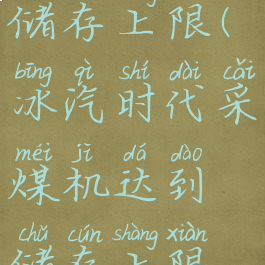 储存上限(
bīng qì shí dài cǎi
冰汽时代采
méi jī dá dào
煤机达到
chǔ cún shàng xiàn
储存上限